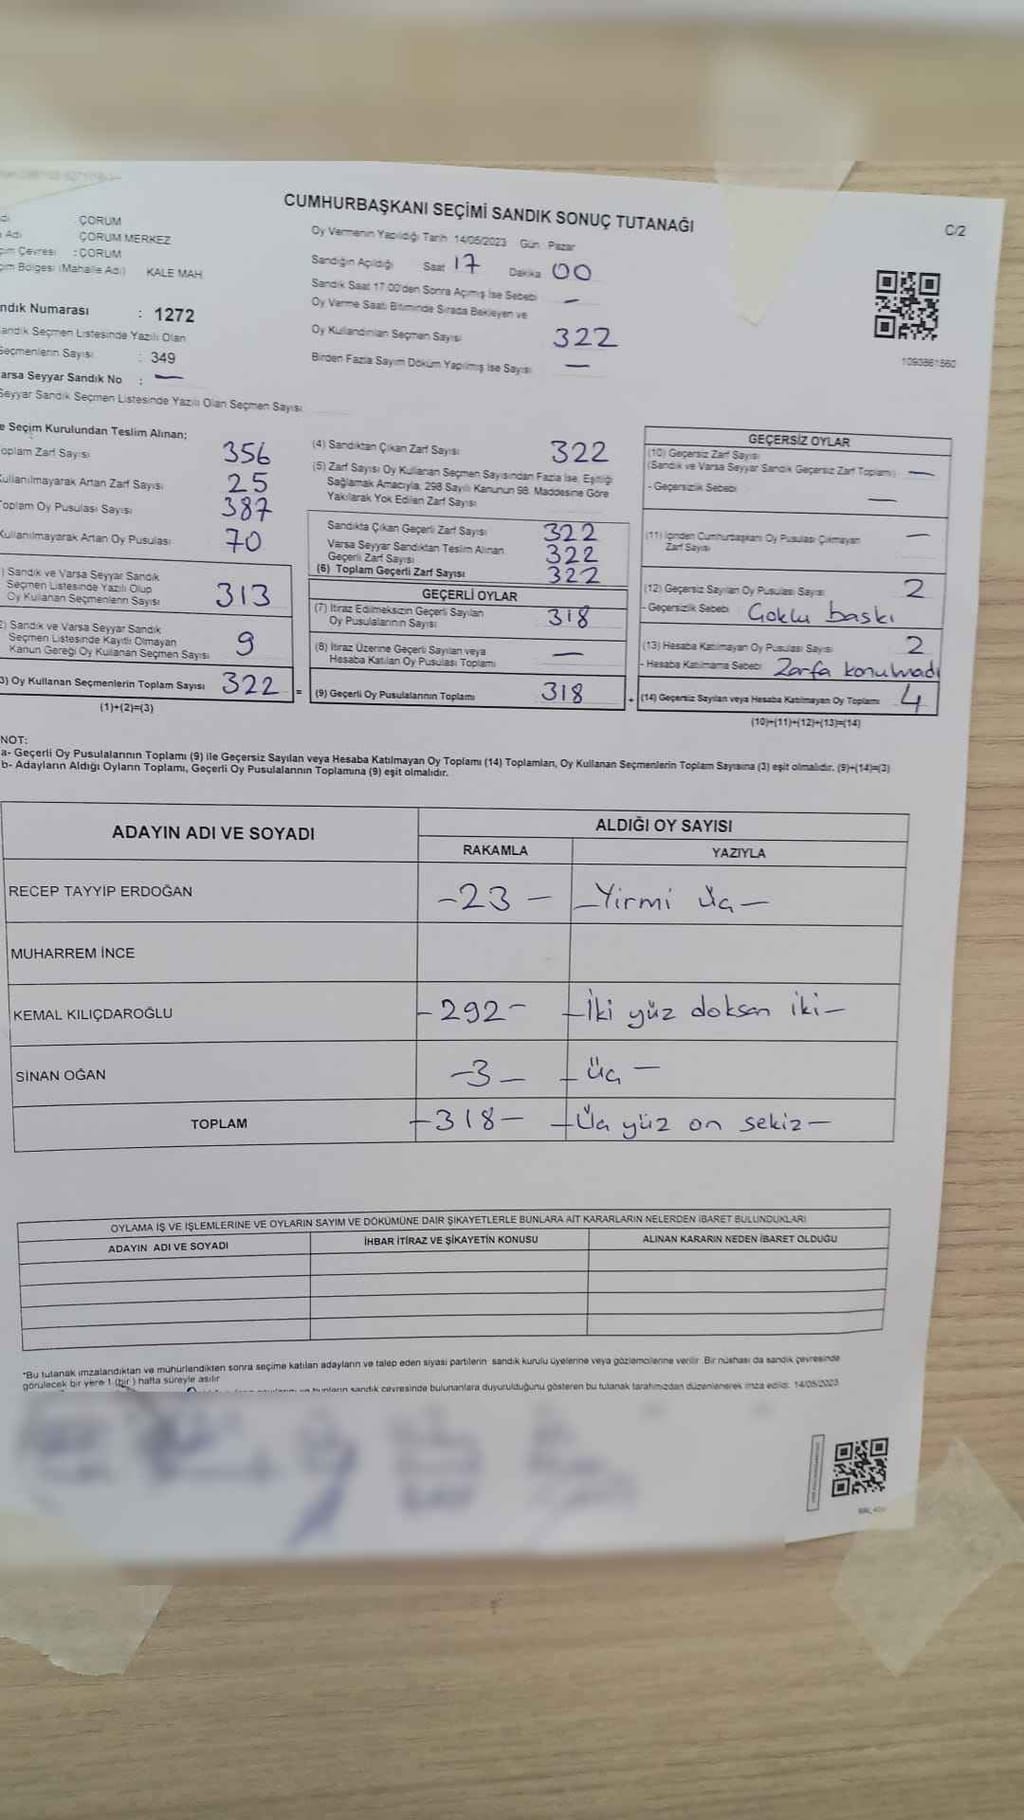 CUMHURBAŞKANI SEÇİMİ SANDIK SONUÇ TUTANAĞI
C/2
ÇORUM
Adı ÇORUM MERKEZ
Çevresi : ÇORUM
Bölgesi (Mahalle Adı) KALE MAH.
Oy Vermenin Yapıldığı Tarih 14/05/2023 Gün Pazar
Sandığın Açıldığı Saat 17 Dakika 00
Sandık Saat 17.00'den Sonra Açılmış İse Sebebi —
Oy Verme Saati Bitiminde Sırada Bekleyen ve
Oy Kullandırılan Seçmen Sayısı 322
Birden Fazla Sayım Döküm Yapılmış İse Sayısı —
1090861560
Numarası : 1272
Seçmen Listesinde Yazılı Olan
Seçmenlerin Sayısı : 349
Seyyar Sandık No : —
Seyyar Sandık Seçmen Listesinde Yazılı Olan Seçmen Sayısı
Seçim Kurulundan Teslim Alınan;
Zarf Sayısı 356
Kullanılmayarak Artan Zarf Sayısı 25
Toplam Oy Pusulası Sayısı 387
Kullanılmayarak Artan Oy Pusulası 70
) Sandık ve Varsa Seyyar Sandık
Seçmen Listesinde Yazılı Olup
Oy Kullanan Seçmenlerin Sayısı 313
2) Sandık ve Varsa Seyyar Sandık
Seçmen Listesinde Kayıtlı Olmayan
Kanun Gereği Oy Kullanan Seçmen Sayısı 9
3) Oy Kullanan Seçmenlerin Toplam Sayısı 322 =
(1)+(2)=(3)
(4) Sandıktan Çıkan Zarf Sayısı 322
(5) Zarf Sayısı Oy Kullanan Seçmen Sayısından Fazla İse, Eşitliği
Sağlamak Amacıyla, 298 Sayılı Kanunun 98. Maddesine Göre
Yakılarak Yok Edilen Zarf Sayısı
Sandıkta Çıkan Geçerli Zarf Sayısı 322
Varsa Seyyar Sandıktan Teslim Alınan
Geçerli Zarf Sayısı 322
(6) Toplam Geçerli Zarf Sayısı 322
GEÇERLİ OYLAR
(7) İtiraz Edilmeksizin Geçerli Sayılan
Oy Pusulalarının Sayısı 318
(8) İtiraz Üzerine Geçerli Sayılan veya
Hesaba Katılan Oy Pusulası Toplamı —
(9) Geçerli Oy Pusulalarının Toplamı 318 +
GEÇERSİZ OYLAR
(10) Geçersiz Zarf Sayısı
(Sandık ve Varsa Seyyar Sandık Geçersiz Zarf Toplamı) —
- Geçersizlik Sebebi —
(11) İçinden Cumhurbaşkanı Oy Pusulası Çıkmayan
Zarf Sayısı —
(12) Geçersiz Sayılan Oy Pusulası Sayısı 2
- Geçersizlik Sebebi Çoklu baskı
(13) Hesaba Katılmayan Oy Pusulası Sayısı 2
- Hesaba Katılmama Sebebi Zarfa konulmadı
(14) Geçersiz Sayılan veya Hesaba Katılmayan Oy Toplamı 4
(10)+(11)+(12)+(13)=(14)
NOT:
a- Geçerli Oy Pusulalarının Toplamı (9) ile Geçersiz Sayılan veya Hesaba Katılmayan Oy Toplamı (14) Toplamları, Oy Kullanan Seçmenlerin Toplam Sayısına (3) eşit olmalıdır. (9)+(14)=(3)
b- Adayların Aldığı Oyların Toplamı, Geçerli Oy Pusulalarının Toplamına (9) eşit olmalıdır.
ADAYIN ADI VE SOYADI
ALDIĞI OY SAYISI
RAKAMLA YAZIYLA
RECEP TAYYİP ERDOĞAN -23- -Yirmi Üç-
MUHARREM İNCE
KEMAL KILIÇDAROĞLU -292- -İki yüz doksan iki-
SİNAN OĞAN -3- -Üç-
TOPLAM -318- -Üç yüz on sekiz-
OYLAMA İŞ VE İŞLEMLERİNE VE OYLARIN SAYIM VE DÖKÜMÜNE DAİR ŞİKAYETLERLE BUNLARA AİT KARARLARIN NELERDEN İBARET BULUNDUKLARI
ADAYIN ADI VE SOYADI İHBAR İTİRAZ VE ŞİKAYETİN KONUSU ALINAN KARARIN NEDEN İBARET OLDUĞU
*Bu tutanak imzalandıktan ve mühürlendikten sonra seçime katılan adayların ve talep eden siyasi partilerin sandık kurulu üyelerine veya gözlemcilerine verilir. Bir nüshası da sandık çevresinde
görülecek bir yere 1 (bir) hafta süreyle asılır.
sandık çevresinde bulunanlara duyurulduğunu gösteren bu tutanak tarafımızdan düzenlenerek imza edildi. 14/05/2023